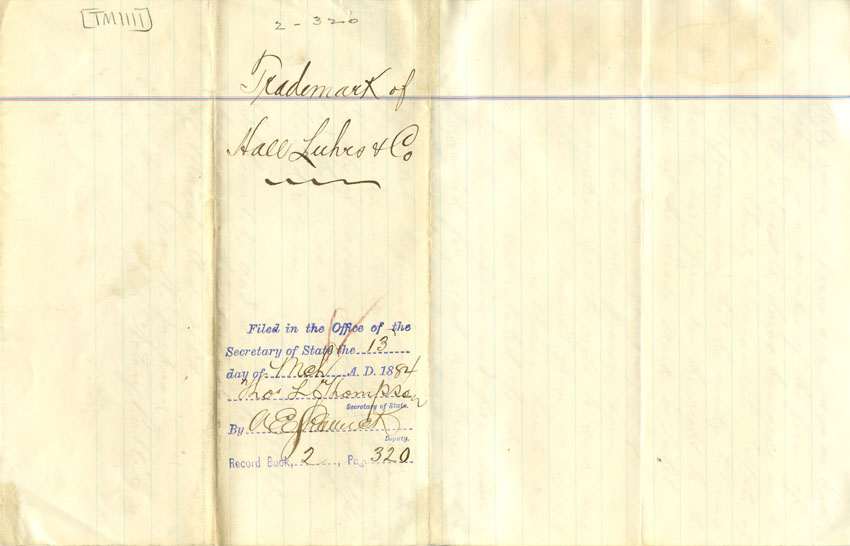 [TM1111]
2-320
Trademark of
Hall Luhrs & Co
Filed in the Office of the
Secretary of State the 13
day of Mch A. D. 1884
Thos L Thompson
Secretary of State.
By A E
Deputy.
Record Book, 2, Pa 320